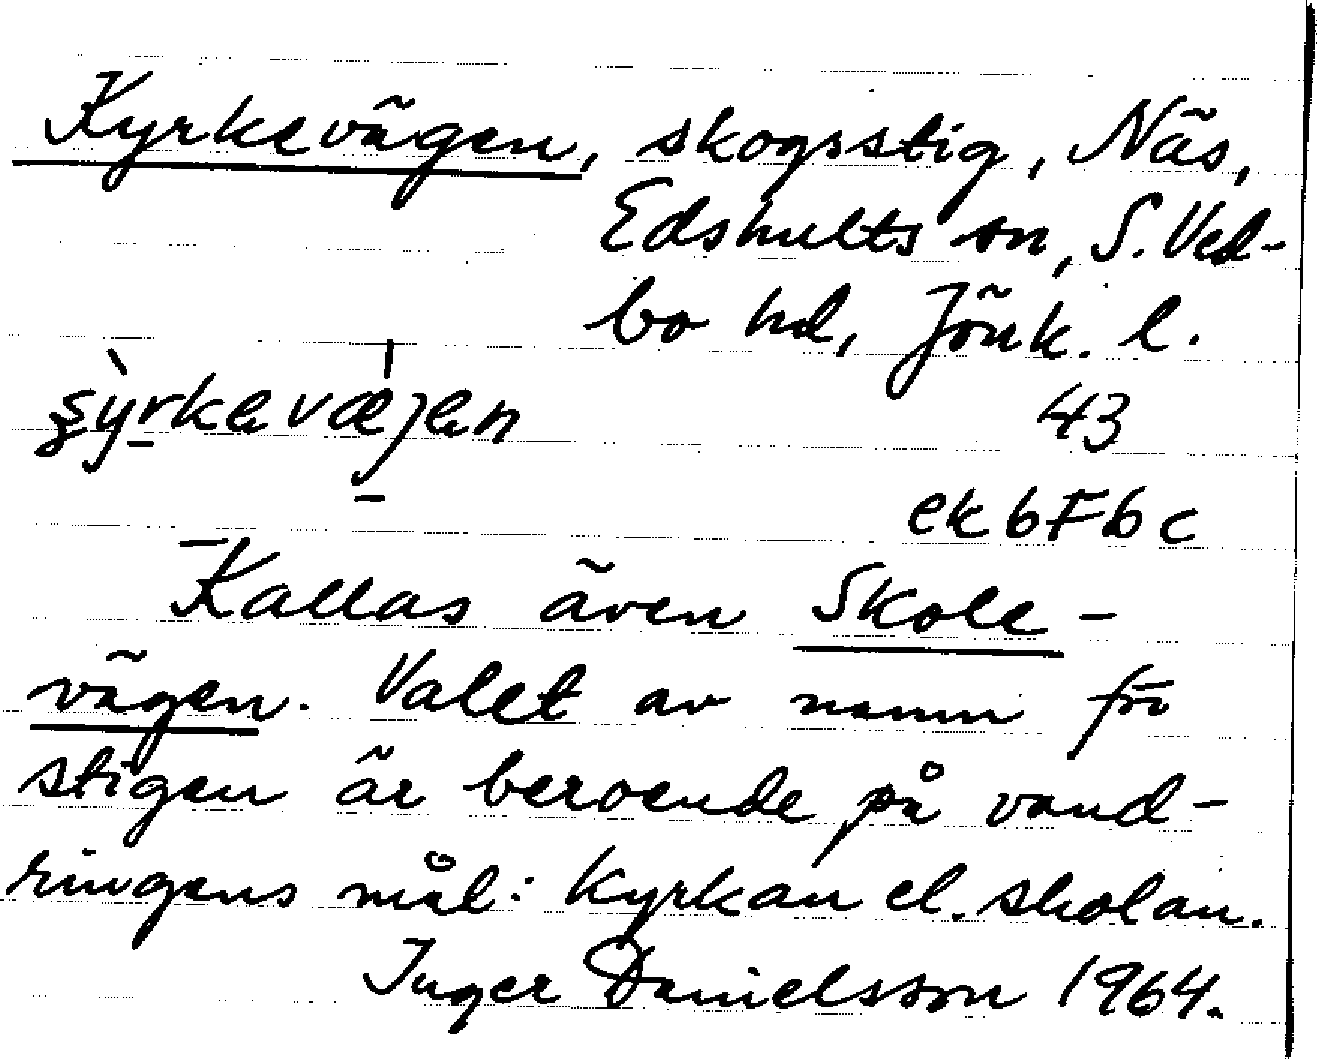 Kyrkevägen, skogsstig, Näs,
Edshults sn, S. Ved-
bo hd, Jönk. l.
43
ek 6 F 6 c
Kallas även Skole-
vägen. Valet av namn för
stigen är beroende på vand-
ringens mål: Kyrkan el. skolan.
Inger Danielsson 1964.